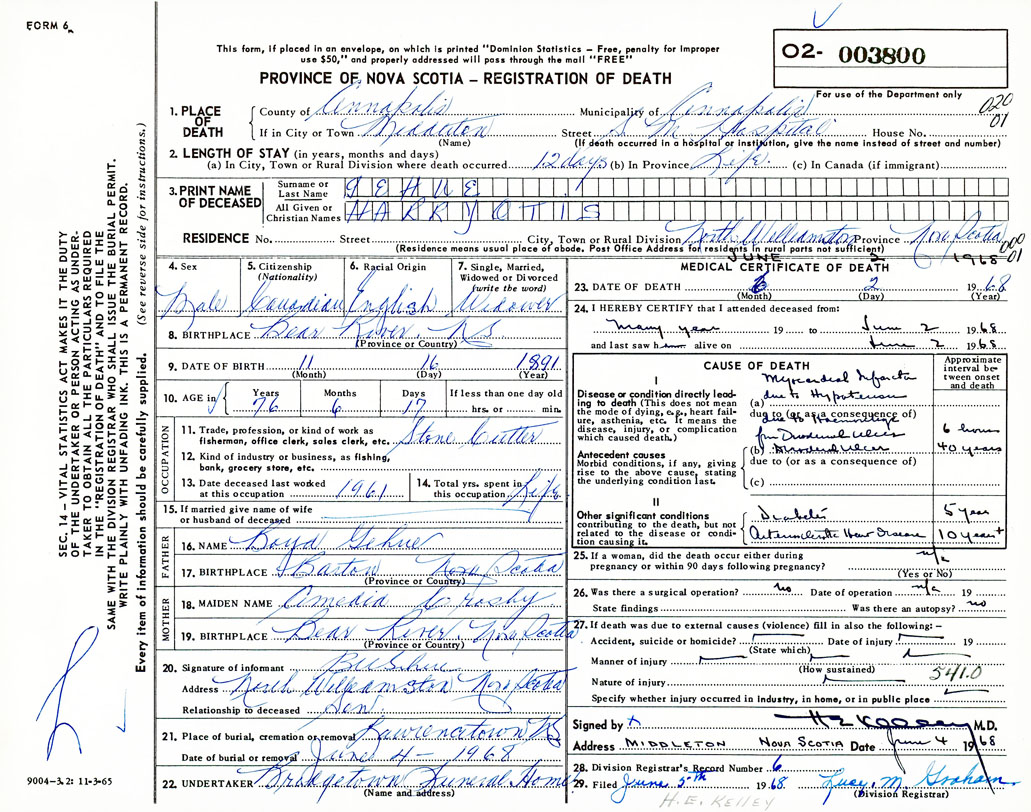 FORM 6A
This form, if placed in an envelope, on which is printed "Dominion Statistics – Free, penalty for improper
use $50," and properly addressed will pass through the mail "FREE"
PROVINCE OF NOVA SCOTIA – REGISTRATION OF DEATH
02- 003800
For use of the Department only
020
01
1. PLACE OF DEATH
County of Annapolis Municipality of Annapolis
If in City or Town Middleton Street S M Hospital House No.
(Name) (If death occurred in a hospital or institution, give the name instead of street and number)
2. LENGTH OF STAY (in years, months and days)
(a) In City, Town or Rural Division where death occurred 12 days (b) In Province Life. (c) In Canada (if immigrant)
3. PRINT NAME OF DECEASED
Surname or Last Name GEHUE
All Given or Christian Names HARRY OTIS
RESIDENCE No. Street City, Town or Rural Division North Williamston Province Nova Scotia
(Residence means usual place of abode, Post Office Address for residents in rural parts not sufficient)
000
01
4. Sex Male
5. Citizenship (Nationality) Canadian
6. Racial Origin English
7. Single, Married, Widowed or Divorced (write the word) Widower
8. BIRTHPLACE Bear River, NS
(Province or Country)
9. DATE OF BIRTH 11 16 1891
(Month) (Day) (Year)
10. AGE in Years 76 Months 6 Days 17 If less than one day old
hrs. or min.
OCCUPATION
11. Trade, profession, or kind of work as
fisherman, office clerk, sales clerk, etc. Stone Cutter
12. Kind of industry or business, as fishing,
bank, grocery store, etc.
13. Date deceased last worked
at this occupation 1961
14. Total yrs. spent in
this occupation Life
15. If married give name of wife
or husband of deceased
FATHER
16. NAME Boyd Gehue
17. BIRTHPLACE Barton Nova Scotia
(Province or Country)
MOTHER
18. MAIDEN NAME Amedia Crosby
19. BIRTHPLACE Bear River, Nova Scotia
(Province or Country)
20. Signature of informant
Address North Williamston Nova Scotia
Relationship to deceased Son
21. Place of burial, cremation or removal Lawrencetown NS
Date of burial or removal June 4 – 1968
22. UNDERTAKER Bridgetown Funeral Home
(Name and address)
MEDICAL CERTIFICATE OF DEATH
JUNE 2 1968
23. DATE OF DEATH 6 2 1968
(Month) (Day) (Year)
24. I HEREBY CERTIFY that I attended deceased from:
many year 19 to June 2 1968
and last saw h alive on June 2 1968
CAUSE OF DEATH
Approximate interval between onset and death
I
Disease or condition directly leading to death (This does not mean the mode of dying, e.g., heart failure, asthenia, etc. It means the disease, injury, or complication which caused death.)
Myocardial Infarction
(a) due to Hypotension
due to (or as a consequence of)
due to Hemorrhage
from Duodenal Ulcer 6 hours
Antecedent causes
Morbid conditions, if any, giving rise to the above cause, stating the underlying condition last.
(b) Duodenal Ulcer 40 years
due to (or as a consequence of)
(c)
II
Other significant conditions contributing to the death, but not related to the disease or condition causing it.
Diabetes 5 year
Arteriosclerotic Heart Disease 10 years +
25. If a woman, did the death occur either during
pregnancy or within 90 days following pregnancy? n/a
(Yes or No)
26. Was there a surgical operation? no Date of operation n/a 19
State findings Was there an autopsy? no
27. If death was due to external causes (violence) fill in also the following:–
Accident, suicide or homicide? Date of injury 19
(State which)
Manner of injury
(How sustained)
Nature of injury 541.0
Specify whether injury occurred in industry, in home, or in public place
Signed by H E Kelley M.D.
Address MIDDLETON NOVA SCOTIA Date June 4 1968
28. Division Registrar's Record Number 6
29. Filed June 5th 1968 Lucy M. Graham
(Division Registrar)
H.E. KELLEY
SEC. 14 – VITAL STATISTICS ACT MAKES IT THE DUTY
OF THE UNDERTAKER OR PERSON ACTING AS UNDER-
TAKER TO OBTAIN ALL THE PARTICULARS REQUIRED
IN THE "REGISTRATION OF DEATH" AND TO FILE THE
SAME WITH THE DIVISION REGISTRAR WHO SHALL ISSUE THE BURIAL PERMIT.
WRITE PLAINLY WITH UNFADING INK. THIS IS A PERMANENT RECORD.
Every item of information should be carefully supplied. (See reverse side for instructions.)
9004-3.2: 11-3-65